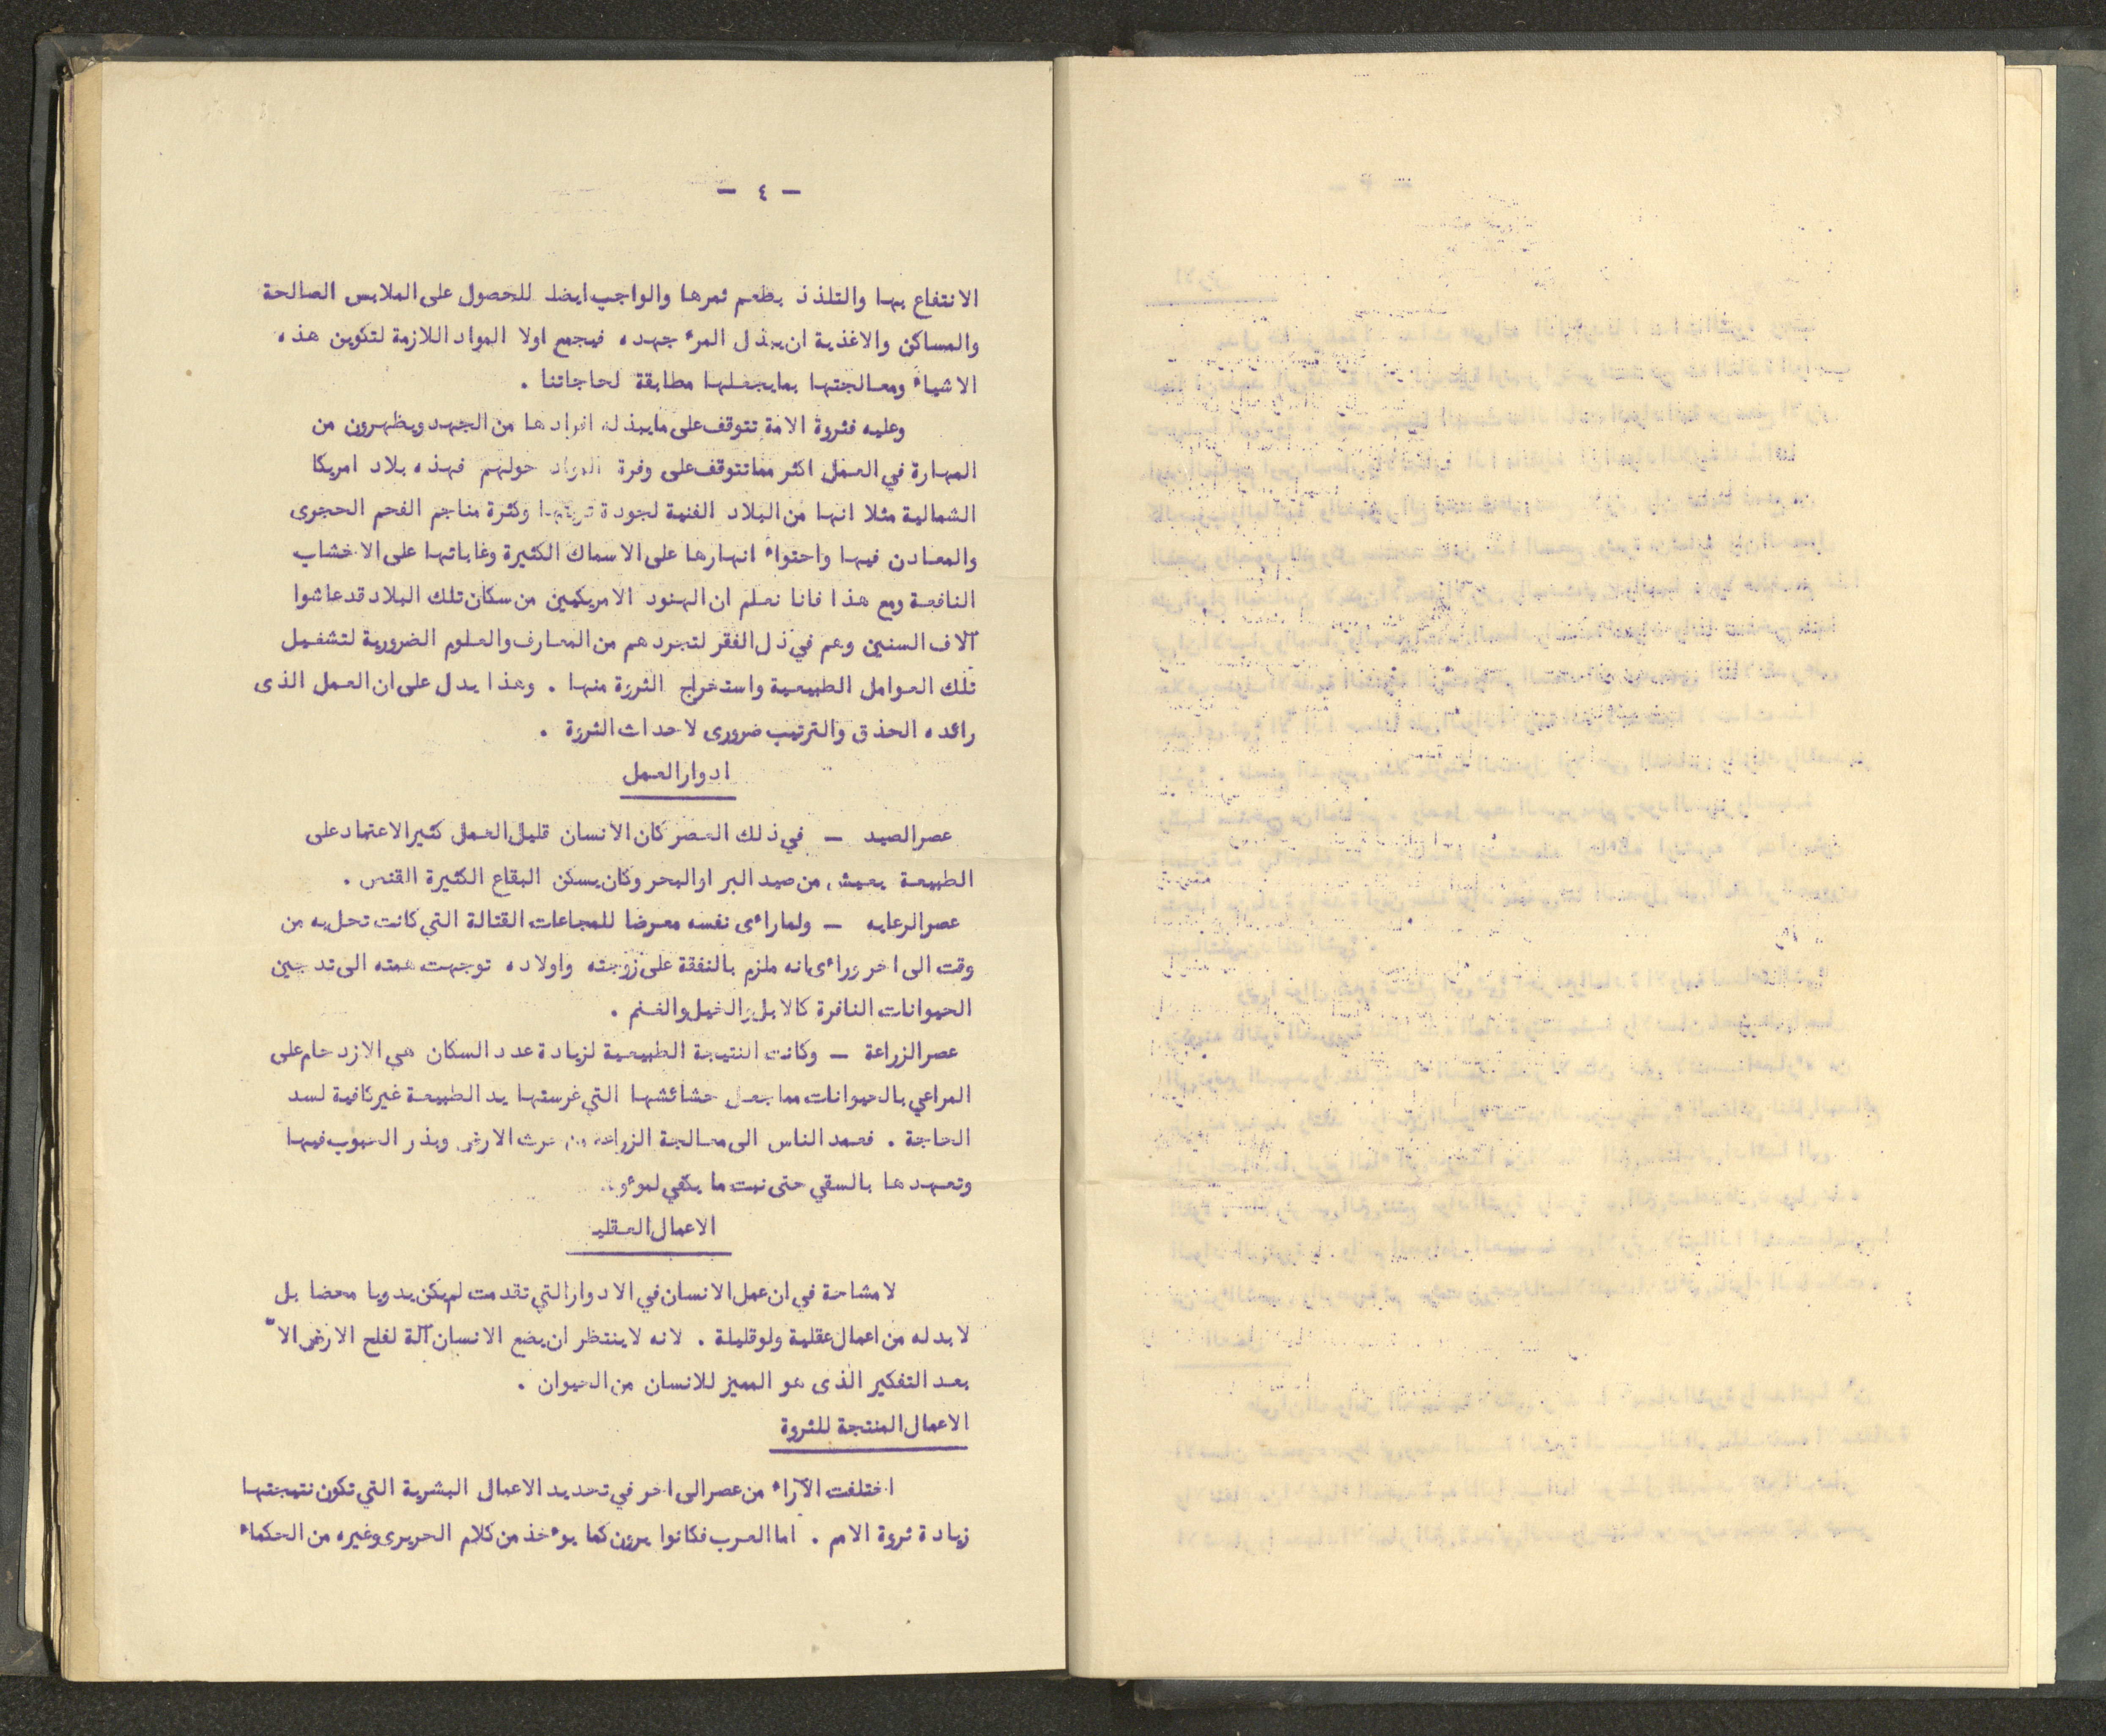 - ٤ -
الانتفاع بها والتلذذ بطعم ثمرها والواجب ايضا للحصول على الملابس الصالحة
والمساكن والاغذية ان يبذل المرء جهده فيجمع اولا المواد اللازمة لتكوين هذه
الاشياء ومعالجتها بما يجعلها مطابقة لحاجاتنا .
وعليه فثروة الامة تتوقف على ما يبذله افرادها من الجهد ويظهرون من
المهارة في العمل اكثر مما تتوقف على وفرة المواد حولهم فهذه بلاد امريكا
الشمالية مثلا انها من البلاد الغنية لجودة تربتها وكثرة مناجم الفحم الحجرى
والمعادن فيها واحتواء انهارها على الاسماك الكثيرة وغاباتها على الاخشاب
النافعة ومع هذا فانا نعلم ان الهنود الامريكيين من سكان تلك البلاد قد عاشوا
آلاف السنين وهم في ذل الفقر لتجردهم من المعارف والعلوم الضرورية لتشغيل
تلك العوامل الطبيعية واستخراج الثروة منها . وهذا يدل على ان العمل الذى
رائده الحذق والترتيب ضرورى لاحداث الثروة .
ادوار العمل
عصر الصيد - في ذلك العصر كان الانسان قليل العمل كثير الاعتماد على
الطبيعة يعيش من صيد البر او البحر وكان يسكن البقاع الكثيرة القنص .
عصر الرعايه - ولما راءى نفسه معرضا للمجاعات القتالة التي كانت تحل به من
وقت الى اخر وراءى انه ملزم بالنفقة على زوجته واولاده توجهت همته الى تدجين
الحيوانات النافرة كالابل والخيل والغنم .
عصر الزراعة - وكانت النتيجة الطبيعية لزيادة عدد السكان هي الازدحام على
المراعي بالحيوانات مما جعل حشائشها التي غرستها يد الطبيعة غير كافية لسد
الحاجة . فعمد الناس الى معالجة الزراعة من حرث الارض وبذر الحبوب فيها
وتعهدها بالسقي حتى نبت ما يكفي
الاعمال العقليه
لا مشاحة في ان عمل الانسان في الادوار التي تقدمت لم يكن يدويا محضا بل
لا بد له من اعمال عقلية ولو قليلة . لانه لا ينتظر ان يضع الانسان آلة لفلح الارض الا
بعد التفكير الذى هو المميز للانسان من الحيوان .
الاعمال المنتجة للثروة
اختلفت الآراء من عصر الى اخر في تحديد الاعمال البشرية التي تكون نتيجتها
زيادة ثروة الامم . اما العرب فكانوا يرون كما يوءخذ من كلام الحريرى وغيره من الحكماء